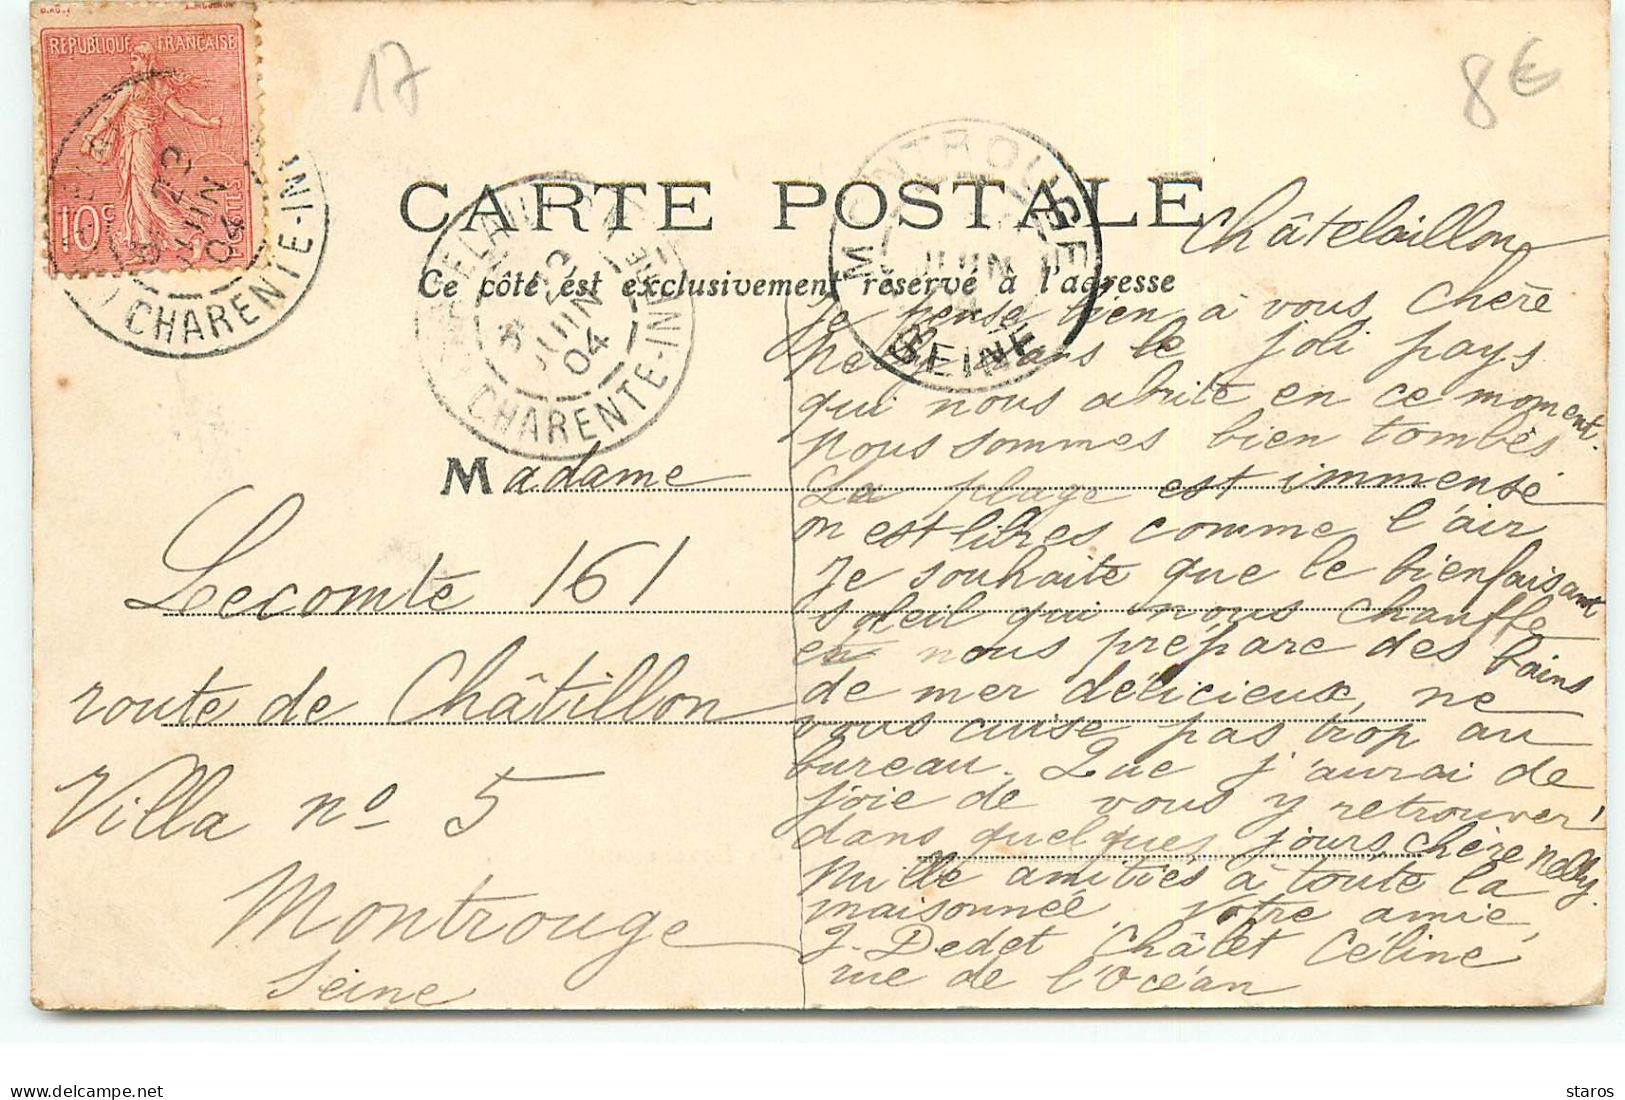 RÉPUBLIQUE FRANÇAISE
10c
POSTES
CHARENTE-IN
JUIN
04
17
8€
CHATELAILLON
JUIN
04
CHARENTE-INFRE
MONTROUGE
JUIN
04
SEINE
CARTE POSTALE
Ce côté est exclusivement réservé à l'adresse
Madame
Lecomte 161
route de Châtillon
Villa no 5
Montrouge
Seine
Châtelaillon
Je pense bien à vous Chère
Nelly dans le joli pays
qui nous abrite en ce moment.
Nous sommes bien tombés
La plage est immense
on est libres comme l'air
Je souhaite que le bienfaisant
soleil qui nous chauffe
et nous prépare des bains
de mer délicieux, ne
vous cuise pas trop au
bureau. Que j'aurai de
joie de vous y retrouver
dans quelques jours chère Nelly.
Mille amitiés à toute la
maisonnée, votre amie,
J. Dedet Châlet Céline
rue de l'Océan
staros